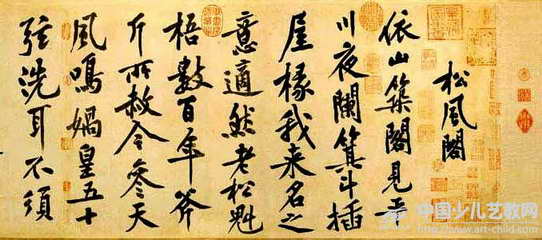 松風閣
依山築閣見平
川夜闌箕斗插
屋椽我來名之
意適然老松魁
梧數百年斧
斤所赦今參天
風鳴媧皇五十
弦洗耳不須
中国少儿艺教网
http://www.art-child.com